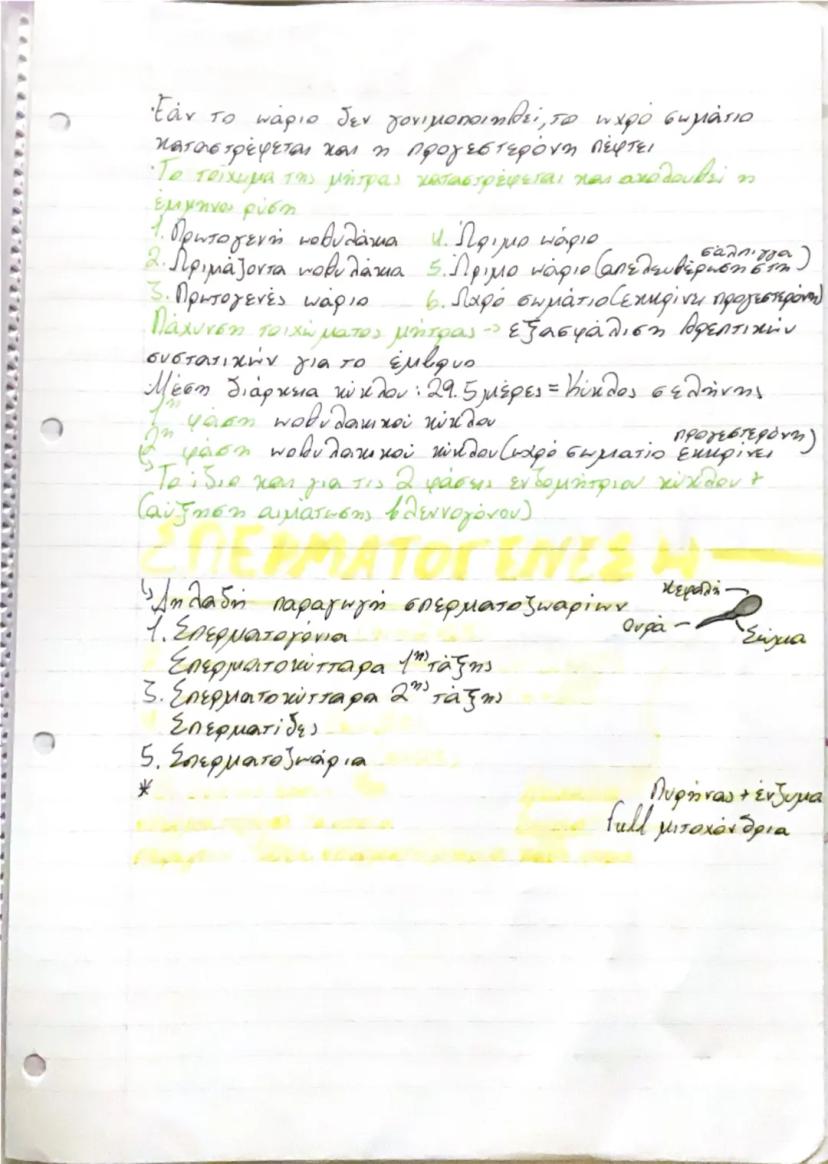 ·Εάν το ωάριο δεν γονιμοποιηθεί, το ωχρό σωμάτιο
καταστρέφεται και η προγεστερόνη πέφτει
·Το τοίχωμα της μήτρας καταστρέφεται και ακολουθεί η
έμμηνος ρύση
1. Πρωτογενή ωοθυλάκια 4. Ώριμο ωάριο
2. Ωριμάζοντα ωοθυλάκια 5. Ώριμο ωάριο (απελευθέρωση στη σάλπιγγα)
3. Πρωτογενές ωάριο 6. Ωχρό σωμάτιο (εκκρίνει προγεστερόνη)
Πάχυνση τοιχώματος μήτρας -> εξασφάλιση θρεπτικών
συστατικών για το έμβρυο
·Μέση διάρκεια κύκλου: 29.5 μέρες = Κύκλος σελήνης
1η φάση ωοθυλακικού κύκλου
2η φάση ωοθυλακικού κύκλου (ωχρό σωματιο εκκρίνει προγεστερόνη)
↳ Το ίδιο και για τις 2 φάσεις ενδομήτριου κύκλου +
(αύξηση αιμάτωσης βλεννογόνου)
ΣΠΕΡΜΑΤΟΓΕΝΕΣΗ
↳ Δηλαδή παραγωγή σπερματοζωαρίων
Κεφαλή
Ουρά
Σώμα
1. Σπερματογόνια
Σπερματοκύτταρα 1ης τάξης
3. Σπερματοκύτταρα 2ης τάξης
Σπερματίδες
5. Σπερματοζωάρια
*
Πυρήνας + ένζυμα
full μιτοχόνδρια